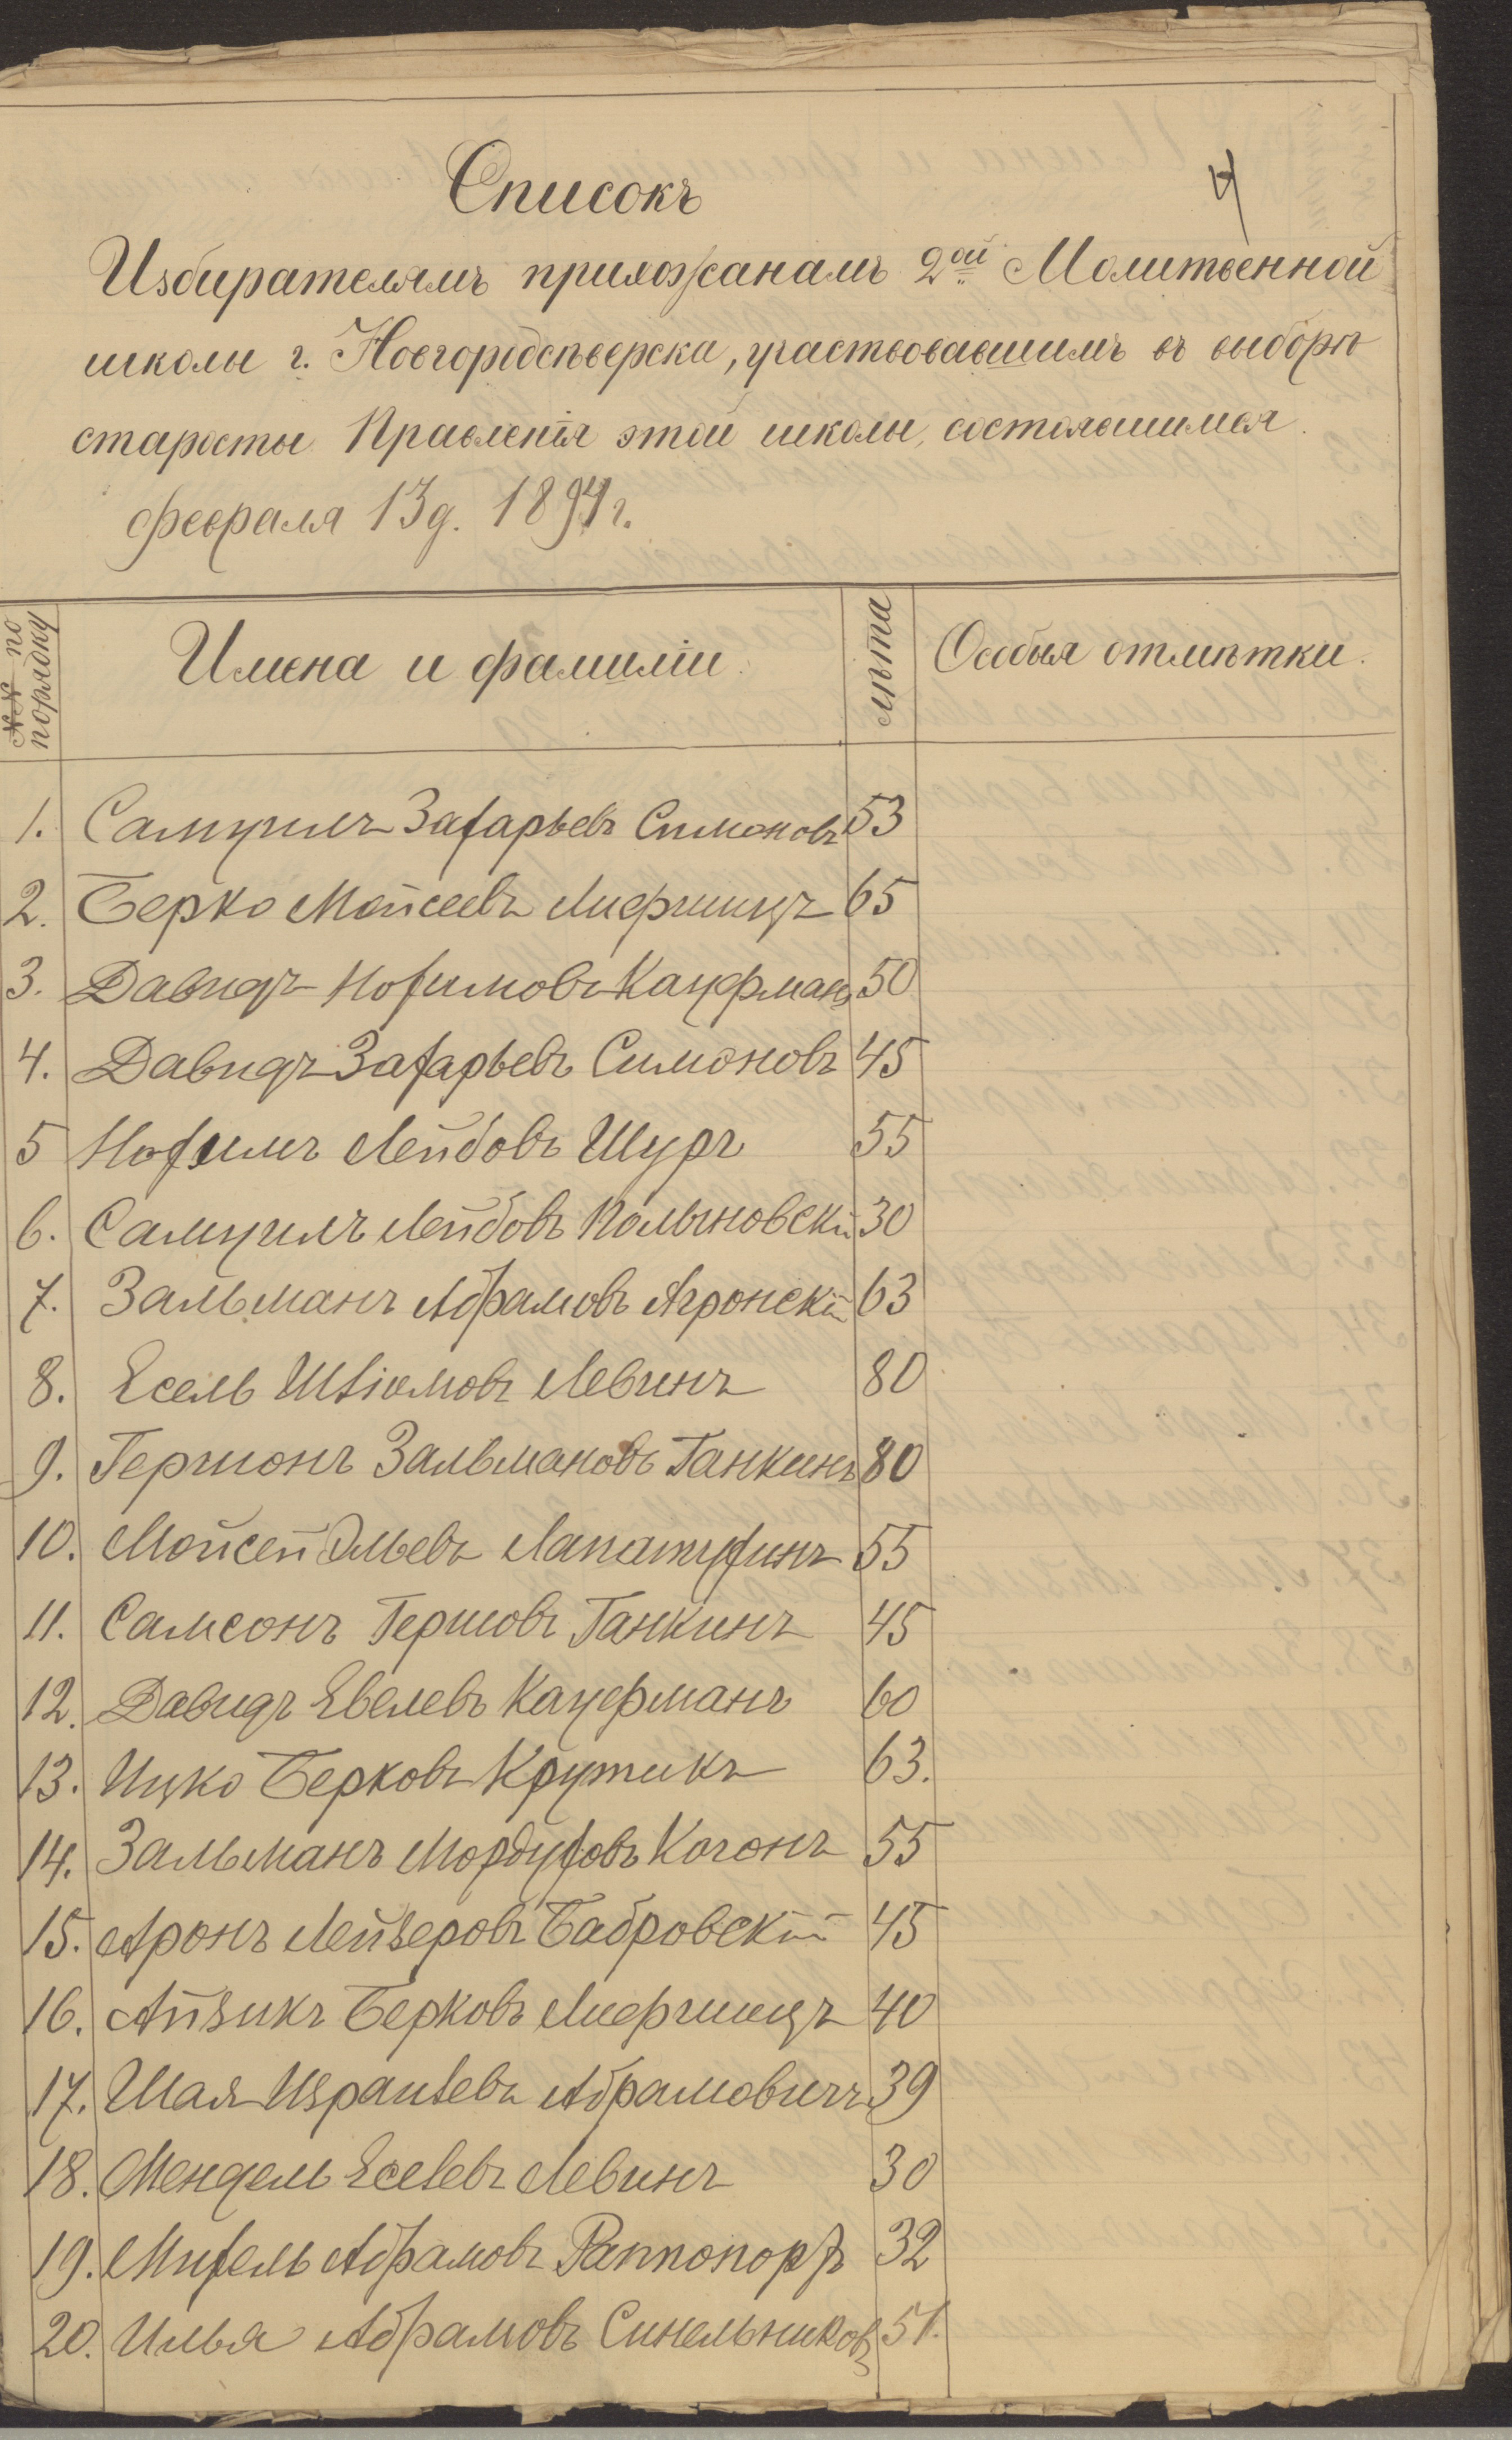 4
Списокъ
Избирателямъ прихожанамъ 2ой Молитвенной
школы г. Новгородсѣверска, участвовавшимъ въ выборѣ
старосты Правленія этой школы, состоявшимся
февраля 13 д. 1894 г.
№№ по порядку Имена и фамиліи лѣта Особыя отмѣтки.
1. Самуилъ Захарьевъ Симоновъ 53
2. Берко Мойсеевъ Лифшицъ 65
3. Давидъ Нохимовъ Кауфманъ 50
4. Давидъ Захарьевъ Симоновъ 45
5 Нохимъ Лейбовъ Шуръ 55
6. Самуилъ Лейбовъ Полыновскій 30
7. Зальманъ Абрамовъ Агронскій 63
8. Есель Левинъ 80
9. Гершонъ Зальмановъ Ганкинъ 80
10. Мойсей Эльевъ Лапатухинъ 55
11. Самсонъ Гершовъ Ганкинъ 45
12. Давидъ Евелевъ Кауфманъ 60
13. Ицко Берковъ Крутикъ 63.
14. Зальманъ Мордуховъ Когонъ 55
15. Аронъ Лейзеровъ Бабровскій 45
16. Айзикъ Берковъ Лифшицъ 40
17. Шая Израилевъ Абрамовичъ 39
18. Мендель Еселевъ Левинъ 30
19. Михель Абрамовъ Раппопортъ 32
20. Илья Абрамовъ Синельниковъ 51.